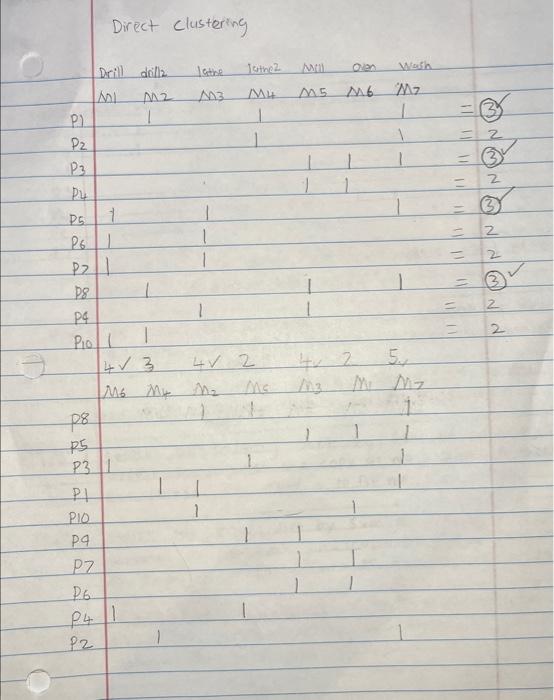 Direct clustering
Drill drill2 lathe lathe2 Mill oven Wash
M1 M2 M3 M4 M5 M6 M7
P1 1 1 1 = 3 ✓
P2 1 1 = 2
P3 1 1 1 = 3 ✓
P4 1 1 = 2
P5 1 1 1 = 3 ✓
P6 1 1 = 2
P7 1 1 = 2
P8 1 1 1 = 3 ✓
P9 1 1 = 2
P10 1 1 = 2
4 ✓ 3 4 ✓ 2 4 ✓ 2 5 ✓
M6 M4 M2 M5 M3 M1 M7
P8 1 1 1
P5 1 1 1
P3 1 1 1
P1 1 1 1
P10 1 1
P9 1 1
P7 1 1
P6 1 1
P4 1 1
P2 1 1